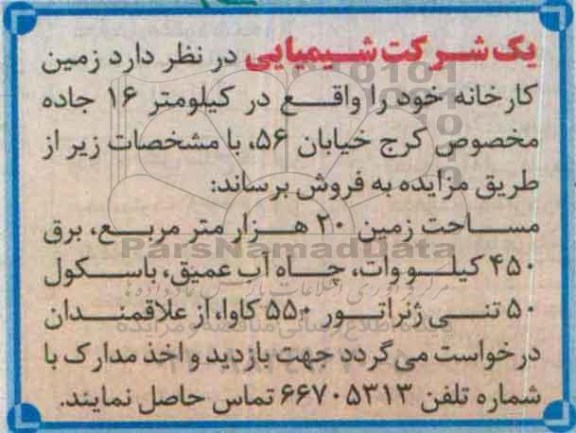 یک شرکت شیمیایی در نظر دارد زمین
کارخانه خود را واقع در کیلومتر ۱۶ جاده
مخصوص کرج خیابان ۵۶، با مشخصات زیر از
طریق مزایده به فروش برساند:
مساحت زمین ۲۰ هزار متر مربع، برق
۴۵۰ کیلو وات، چاه آب عمیق، باسکول
۵۰ تنی ژنراتور ۵۵۰ کاوا، از علاقمندان
درخواست می گردد جهت بازدید و اخذ مدارک با
شماره تلفن ۶۶۷۰۵۳۱۳ تماس حاصل نمایند.
ParsNamadData